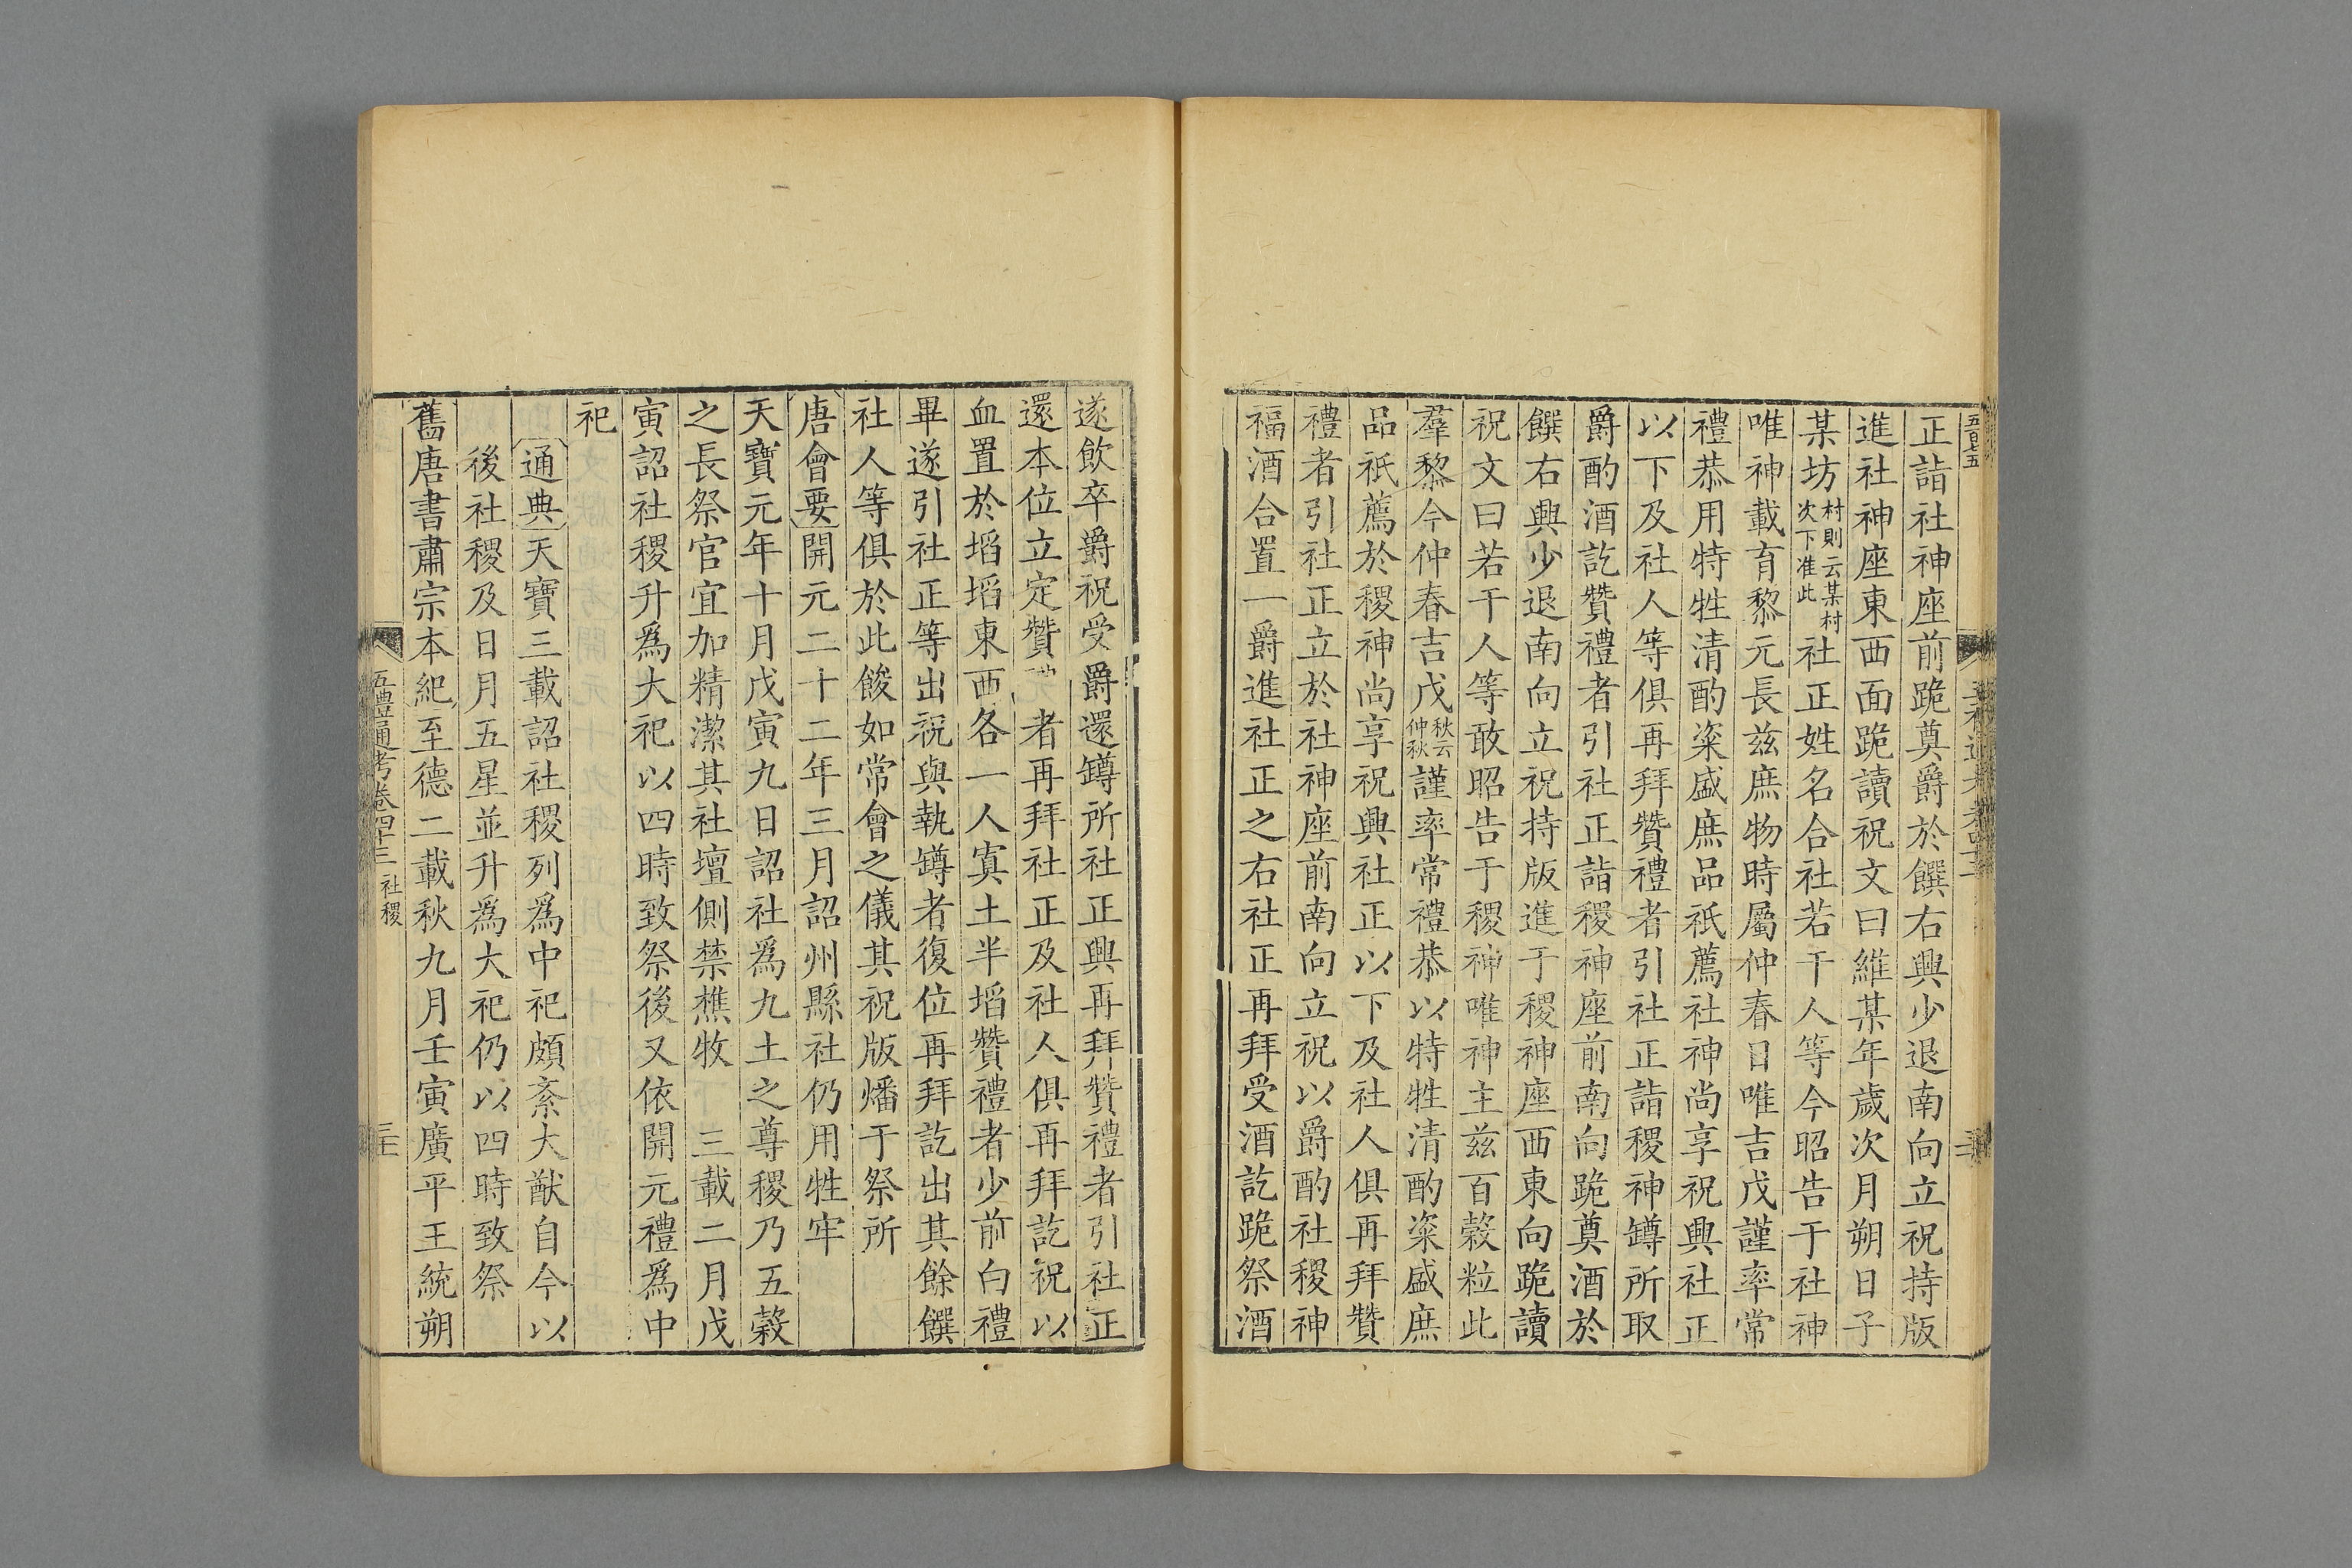 五百七五
正詣社神座前跪奠爵於饌右興少退南向立祝持版
進社神座東西面跪讀祝文曰維某年歲次月朔日子
某坊村則云某村次下准此社正姓名合社若干人等今昭告于社神
唯神載育黎元長兹庶物時屬仲春日唯吉戊謹率常
禮恭用特牲清酌粢盛庶品祇薦社神尚享祝興社正
以下及社人等俱再拜贊禮者引社正詣稷神罇所取
爵酌酒訖贊禮者引社正詣稷神座前南向跪奠酒於
饌右興少退南向立祝持版進于稷神座西東向跪讀
祝文曰若干人等敢昭告于稷神唯神主兹百穀粒此
羣黎今仲春吉戊秋云仲秋謹率常禮恭以特牲清酌粢盛庶
品祇薦於稷神尚享祝興社正以下及社人俱再拜贊
禮者引社正立於社神座前南向立祝以爵酌社稷神
福酒合置一爵進社正之右社正再拜受酒訖跪祭酒
遂飲卒爵祝受爵還罇所社正興再拜贊禮者引社正
還本位立定贊者再拜社正及社人俱再拜訖祝以
血置於埳埳東西各一人寘土半埳贊禮者少前白禮
畢遂引社正等出祝與執罇者復位再拜訖出其餘饌
社人等俱於此餕如常會之儀其祝版燔于祭所
唐會要開元二十二年三月詔州縣社仍用牲牢
天寶元年十月戊寅九日詔社爲九土之尊稷乃五穀
之長祭官宜加精潔其社壇側禁樵牧 三載二月戊
寅詔社稷升爲大祀以四時致祭後又依開元禮爲中
祀
通典天寶三載詔社稷列爲中祀頗紊大猷自今以
後社稷及日月五星並升爲大祀仍以四時致祭
舊唐書肅宗本紀至德二載秋九月壬寅廣平王統朔
五禮通考卷四十三 社稷